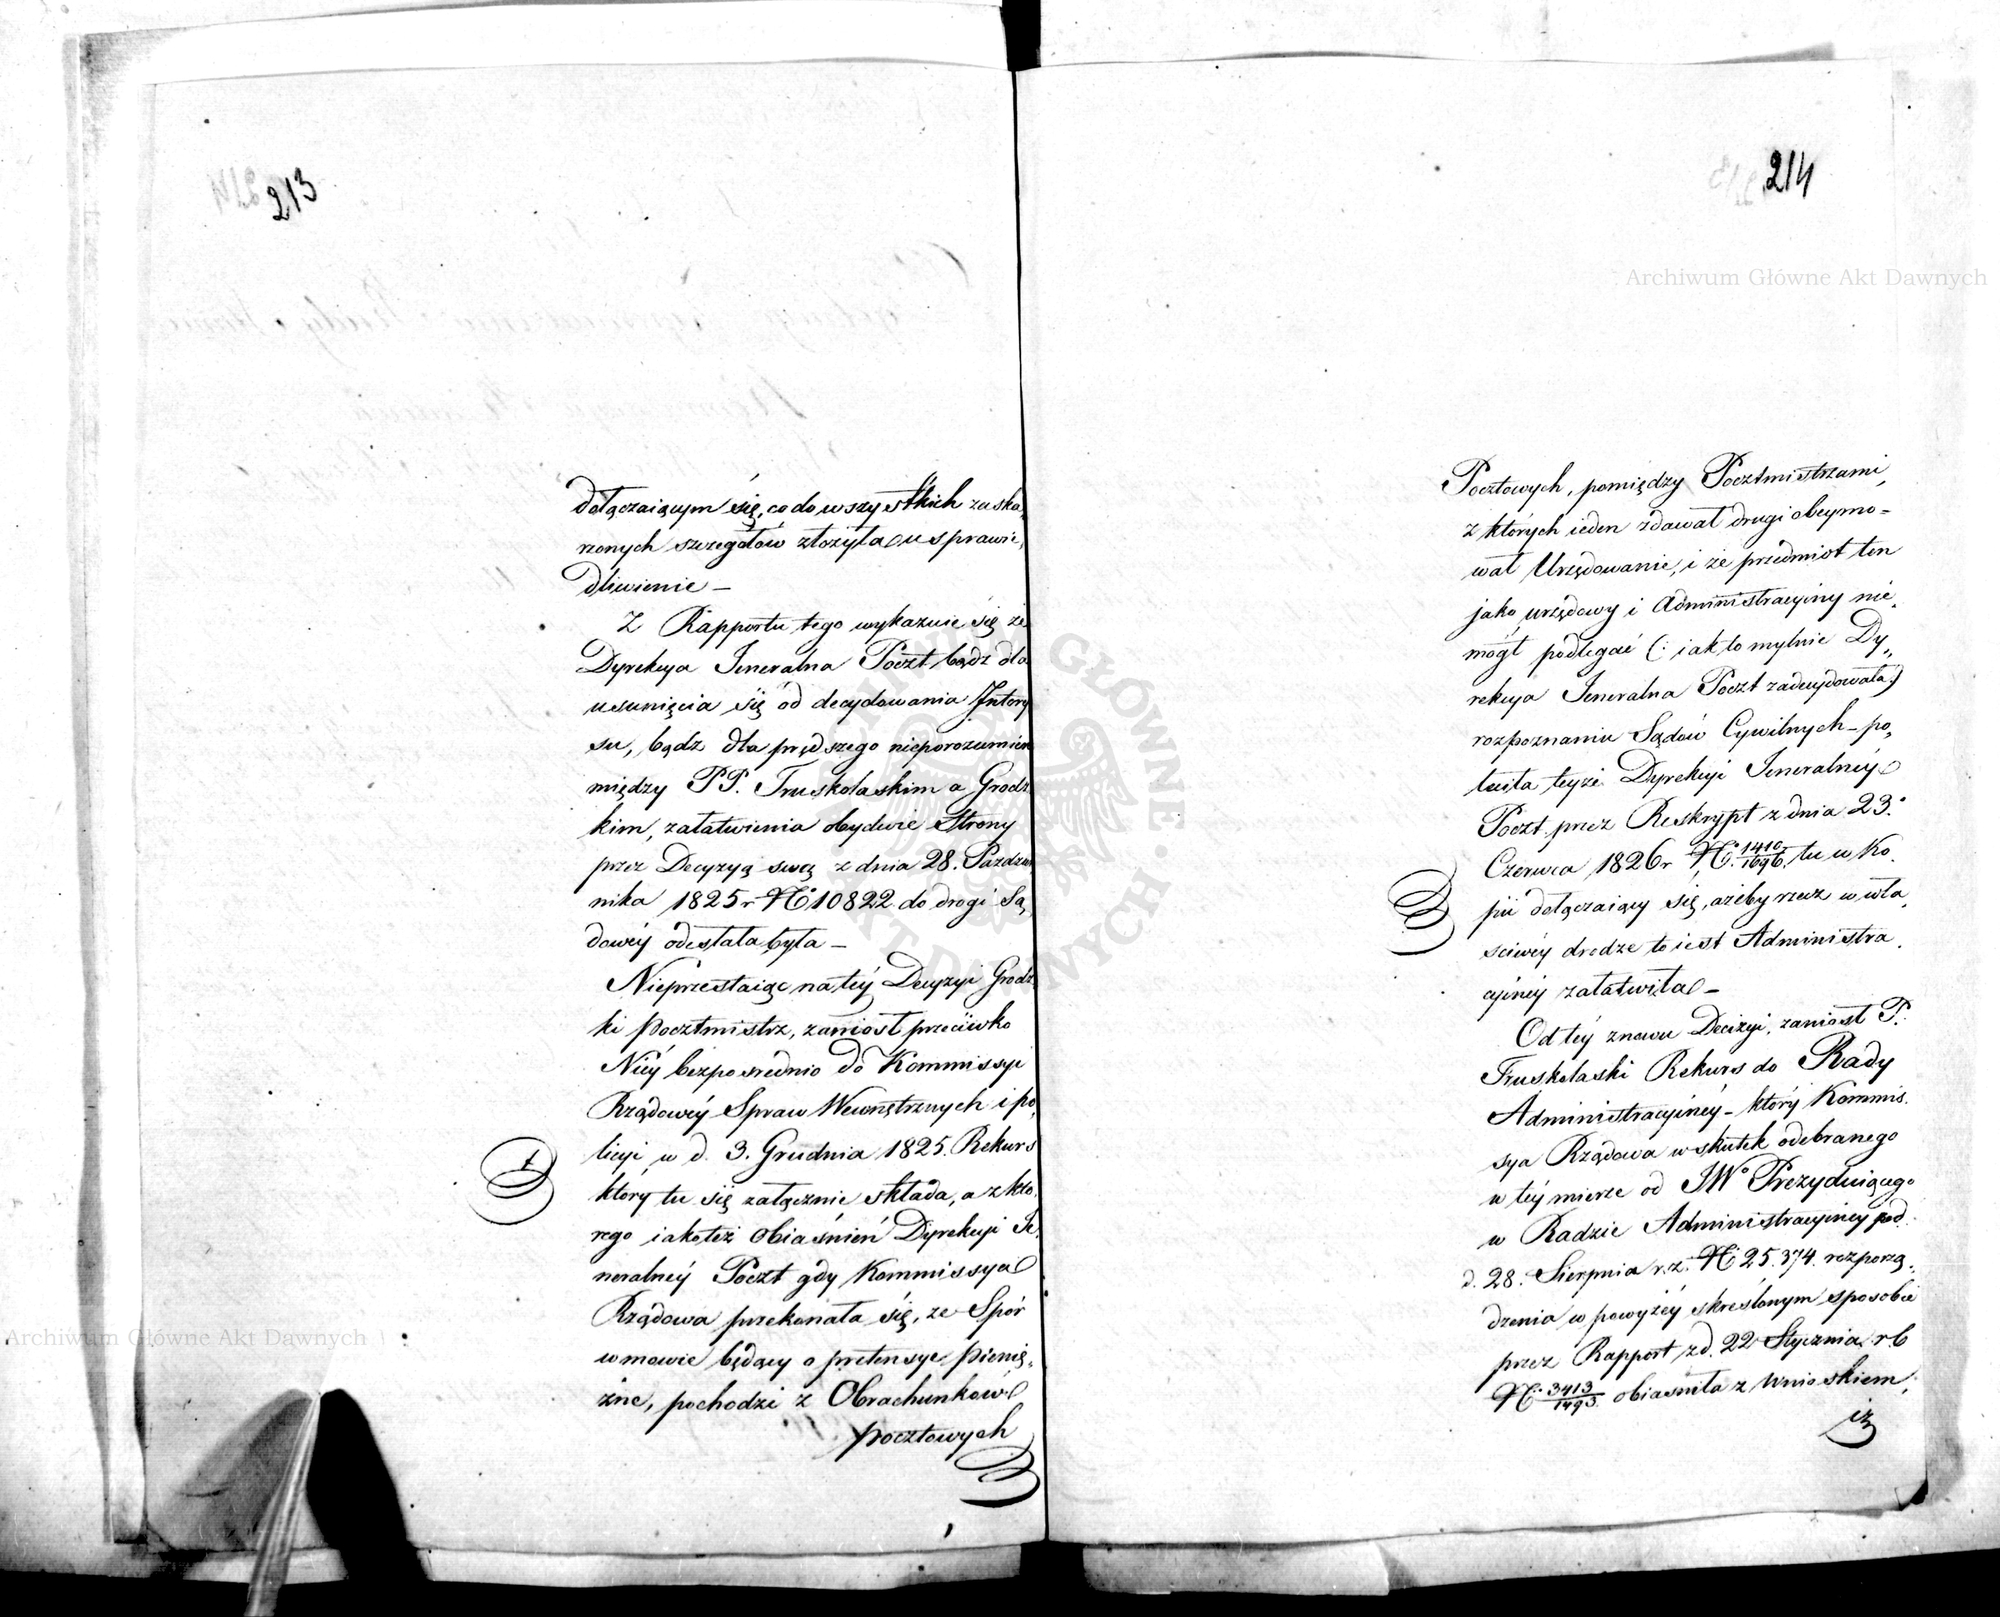 213
dołączaiącym się, co do wszystkich zaska„
rzonych szczegółów złożyła usprawie„
dliwienie –
Z Rapportu tego wykazuie się że
Dyrekcya Jeneralna Poczt bądz dla
usunięcia się od decydowania Intery
su, bądz dla prędszego nieporozumień
między PP. Truskolaskim a Grodz
kim, załatwienia obydwie Strony
przez Decyzyą swą z dnia 28. Pazdzier
nika 1825 r. N° 10822 do drogi Są„
dowéy odesłała była –
Nieprzestaiąc na téy Decyzyi Grodz
ki Pocztmistrz, zaniosł przeciwko
Niéy bezposrednio do Kommissyi
Rządowéy Spraw Wewnętrznych i po„
licyi w d. 3. Grudnia 1825. Rekurs
który tu się załącznie składa, a z któ„
rego iako też obiaśnień Dyrekcyi Je„
neralnéy Poczt gdy Kommissya
Rządowa przekonała się, ze Spór
w mowie będący o pretensye pienię„
żne, pochodzi z Obrachunków
pocztowych
214
Pocztowych, pomiędzy Pocztmistrzami,
z których ieden zdawał drugi obeymo=
wał Urzędowanie, i że przedmiot ten
jako urzędowy i Administracyiny nie„
mógł podlegać (: iak to mylnie Dy„
rekcya Jeneralna Poczt zadecydowała :)
rozpoznaniu Sądów Cywilnych – po„
leciła teyże Dyrekcyi Jeneralnéy
Poczt przez Reskrypt z dnia 23.
Czerwca 1826 r N° 1410/1696. tu w Ko„
pii dołączaiący się, ażeby rzecz w wła„
sciwéy drodze to iest Administra„
cyinéy załatwiła –
Od téy znowu Decizyi, zaniosł P.
Truskolaski Rekurs do Rady
Administracyinéy – który Kommis„
sya Rządowa w skutek odebranego
w téy mierze od JW° Prezyduiącego
w Radzie Administracyinéy pod
d. 28. Sierpnia r. z. N° 25.374. rozporzą„
dzenia w powyżéy skreślonym sposobie
przez Rapport z d. 22 Stycznia r b
N° 3413/1493. obiasniła z Wnioskiem,
iż
Archiwum Główne Akt Dawnych
Archiwum Główne Akt Dawnych